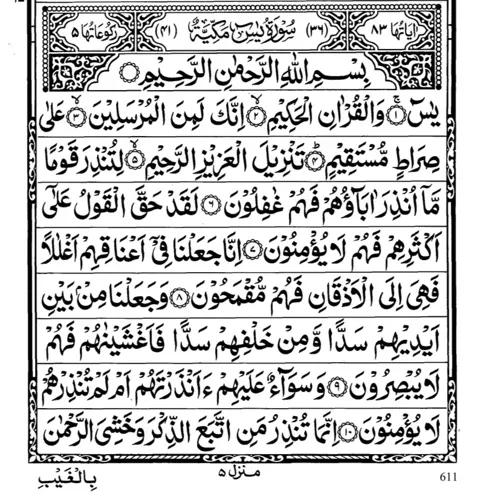 اٰيَاتُهَا ٨٣ (٣٦) سُوْرَةُ يٰسٓ مَكِّيَّةٌ (٤١) رُكُوْعَاتُهَا ٥
بِسْمِ اللّٰهِ الرَّحْمٰنِ الرَّحِيْمِ
يٰسٓ ۝١ وَالْقُرْاٰنِ الْحَكِيْمِ ۝٢ اِنَّكَ لَمِنَ الْمُرْسَلِيْنَ ۝٣ عَلٰى
صِرَاطٍ مُّسْتَقِيْمٍ ۝٤ تَنْزِيْلَ الْعَزِيْزِ الرَّحِيْمِ ۝٥ لِتُنْذِرَ قَوْمًا
مَّاۤ اُنْذِرَ اٰبَآؤُهُمْ فَهُمْ غٰفِلُوْنَ ۝٦ لَقَدْ حَقَّ الْقَوْلُ عَلٰۤى
اَكْثَرِهِمْ فَهُمْ لَا يُؤْمِنُوْنَ ۝٧ اِنَّا جَعَلْنَا فِيْۤ اَعْنَاقِهِمْ اَغْلٰلًا
فَهِىَ اِلَى الْاَذْقَانِ فَهُمْ مُّقْمَحُوْنَ ۝٨ وَجَعَلْنَا مِنْۢ بَيْنِ
اَيْدِيْهِمْ سَدًّا وَّمِنْ خَلْفِهِمْ سَدًّا فَاَغْشَيْنٰهُمْ فَهُمْ
لَا يُبْصِرُوْنَ ۝٩ وَسَوَآءٌ عَلَيْهِمْ ءَاَنْذَرْتَهُمْ اَمْ لَمْ تُنْذِرْهُمْ
لَا يُؤْمِنُوْنَ ۝١٠ اِنَّمَا تُنْذِرُ مَنِ اتَّبَعَ الذِّكْرَ وَخَشِىَ الرَّحْمٰنَ
منزل ٥
بِالْغَيْبِ
611